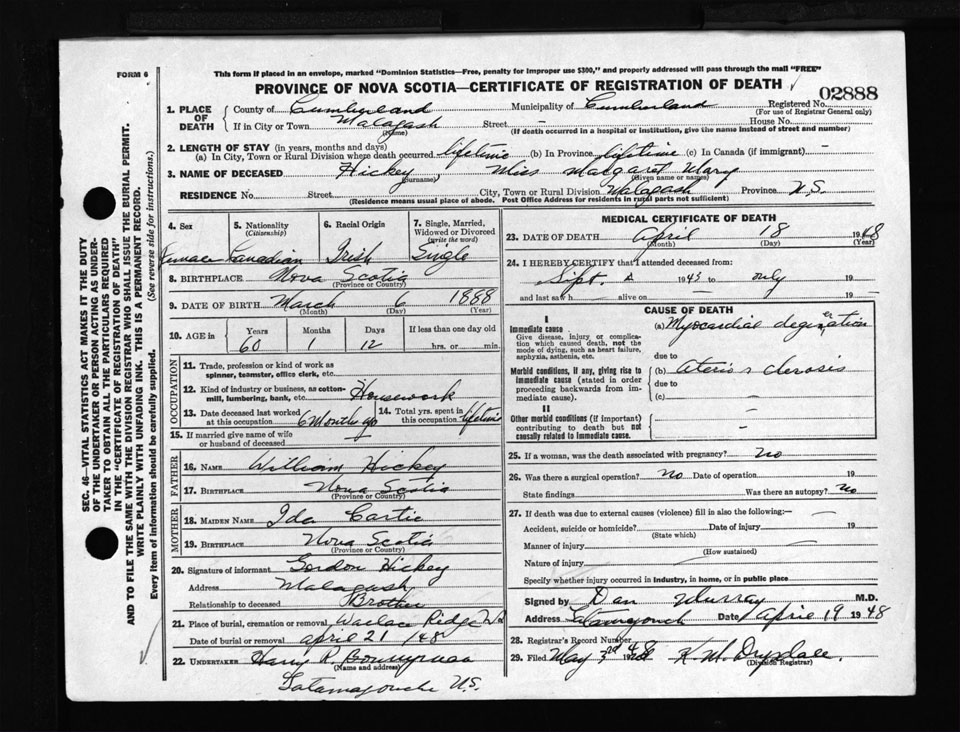 FORM 6
This form if placed in an envelope, marked "Dominion Statistics—Free, penalty for improper use $300," and properly addressed will pass through the mail "FREE"
PROVINCE OF NOVA SCOTIA—CERTIFICATE OF REGISTRATION OF DEATH
02888
1. PLACE OF DEATH County of Cumberland Municipality of Cumberland Registered No. (For use of Registrar General only)
If in City or Town Malagash (Name) Street — House No.
(If death occurred in a hospital or institution, give the name instead of street and number)
2. LENGTH OF STAY (in years, months and days)
(a) In City, Town or Rural Division where death occurred lifetime (b) In Province lifetime (c) In Canada (if immigrant) —
3. NAME OF DECEASED Hickey (Surname) Miss Margaret Mary (Given name or names)
RESIDENCE No. Street City, Town or Rural Division Malagash Province N.S.
(Residence means usual place of abode. Post Office Address for residents in rural parts not sufficient)
4. Sex Female
5. Nationality (Citizenship) Canadian
6. Racial Origin Irish
7. Single, Married, Widowed or Divorced (write the word) Single
8. BIRTHPLACE Nova Scotia (Province or Country)
9. DATE OF BIRTH March (Month) 6 (Day) 1888 (Year)
10. AGE in Years 60 Months 1 Days 12 If less than one day old hrs. or min.
OCCUPATION
11. Trade, profession or kind of work as spinner, teamster, office clerk, etc.
12. Kind of industry or business, as cotton-mill, lumbering, bank, etc. Housework
13. Date deceased last worked at this occupation 6 Months ago
14. Total yrs. spent in this occupation lifetime
15. If married give name of wife or husband of deceased
FATHER
16. NAME William Hickey
17. BIRTHPLACE Nova Scotia (Province or Country)
MOTHER
18. MAIDEN NAME Ida
19. BIRTHPLACE Nova Scotia (Province or Country)
20. Signature of informant Gordon Hickey
Address Malagash
Relationship to deceased Brother
21. Place of burial, cremation or removal Wallace Ridge N.S.
Date of burial or removal april 21 /48
22. UNDERTAKER Harry P. (Name and address)
Tatamagouche N.S.
MEDICAL CERTIFICATE OF DEATH
23. DATE OF DEATH April (Month) 18 (Day) 1948 (Year)
24. I HEREBY CERTIFY that I attended deceased from:
Sept. 1945 to only 19
and last saw h alive on — 19 —
CAUSE OF DEATH
I
Immediate cause
Give disease, injury or complication which caused death, not the mode of dying, such as heart failure, asphyxia, asthenia, etc.
(a) Myocardial degeneration
due to
Morbid conditions, if any, giving rise to immediate cause (stated in order proceeding backwards from immediate cause).
(b) Aterio sclerosis
due to
(c) —
II
Other morbid conditions (if important) contributing to death but not causally related to immediate cause.
—
—
25. If a woman, was the death associated with pregnancy? no
26. Was there a surgical operation? no Date of operation 19
State findings Was there an autopsy? no
27. If death was due to external causes (violence) fill in also the following:—
Accident, suicide or homicide? (State which) Date of injury 19
Manner of injury (How sustained)
Nature of injury
Specify whether injury occurred in industry, in home, or in public place
Signed by Dan Murray M.D.
Address Tatamagouche Date April 19 1948
28. Registrar's Record Number
29. Filed May 3rd 1948 K. M. Drysdale. (Division Registrar)
SEC. 46—VITAL STATISTICS ACT MAKES IT THE DUTY
OF THE UNDERTAKER OR PERSON ACTING AS UNDER-
TAKER TO OBTAIN ALL THE PARTICULARS REQUIRED
IN THE "CERTIFICATE OF REGISTRATION OF DEATH"
AND TO FILE THE SAME WITH THE DIVISION REGISTRAR WHO SHALL ISSUE THE BURIAL PERMIT.
WRITE PLAINLY WITH UNFADING INK. THIS IS A PERMANENT RECORD.
Every item of information should be carefully supplied. (See reverse side for instructions.)